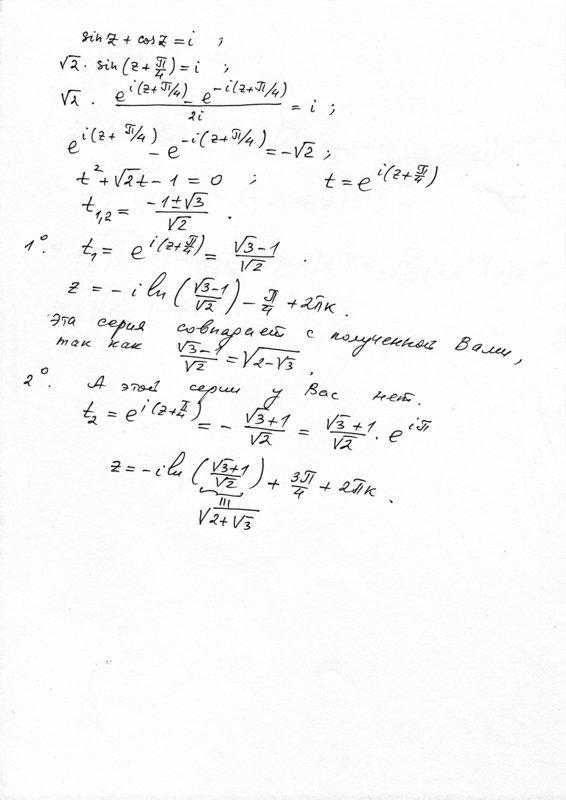 sin z + cos z = i ;
√2 · sin(z + π/4) = i ;
√2 · (e^{i(z+π/4)} - e^{-i(z+π/4)})/2i = i ;
e^{i(z+π/4)} - e^{-i(z+π/4)} = -√2 ;
t² + √2t - 1 = 0 ; t = e^{i(z+π/4)}
t₁,₂ = (-1±√3)/√2 .
1°. t₁ = e^{i(z+π/4)} = (√3-1)/√2 .
z = -i ln((√3-1)/√2) - π/4 + 2πk.
Эта серия совпадает с полученной Вами,
так как (√3-1)/√2 = √(2-√3) .
2°. А этой серии у Вас нет.
t₂ = e^{i(z+π/4)} = - (√3+1)/√2 = (√3+1)/√2 · e^{iπ}
z = -i ln((√3+1)/√2) + 3π/4 + 2πk .
≡
√(2+√3)